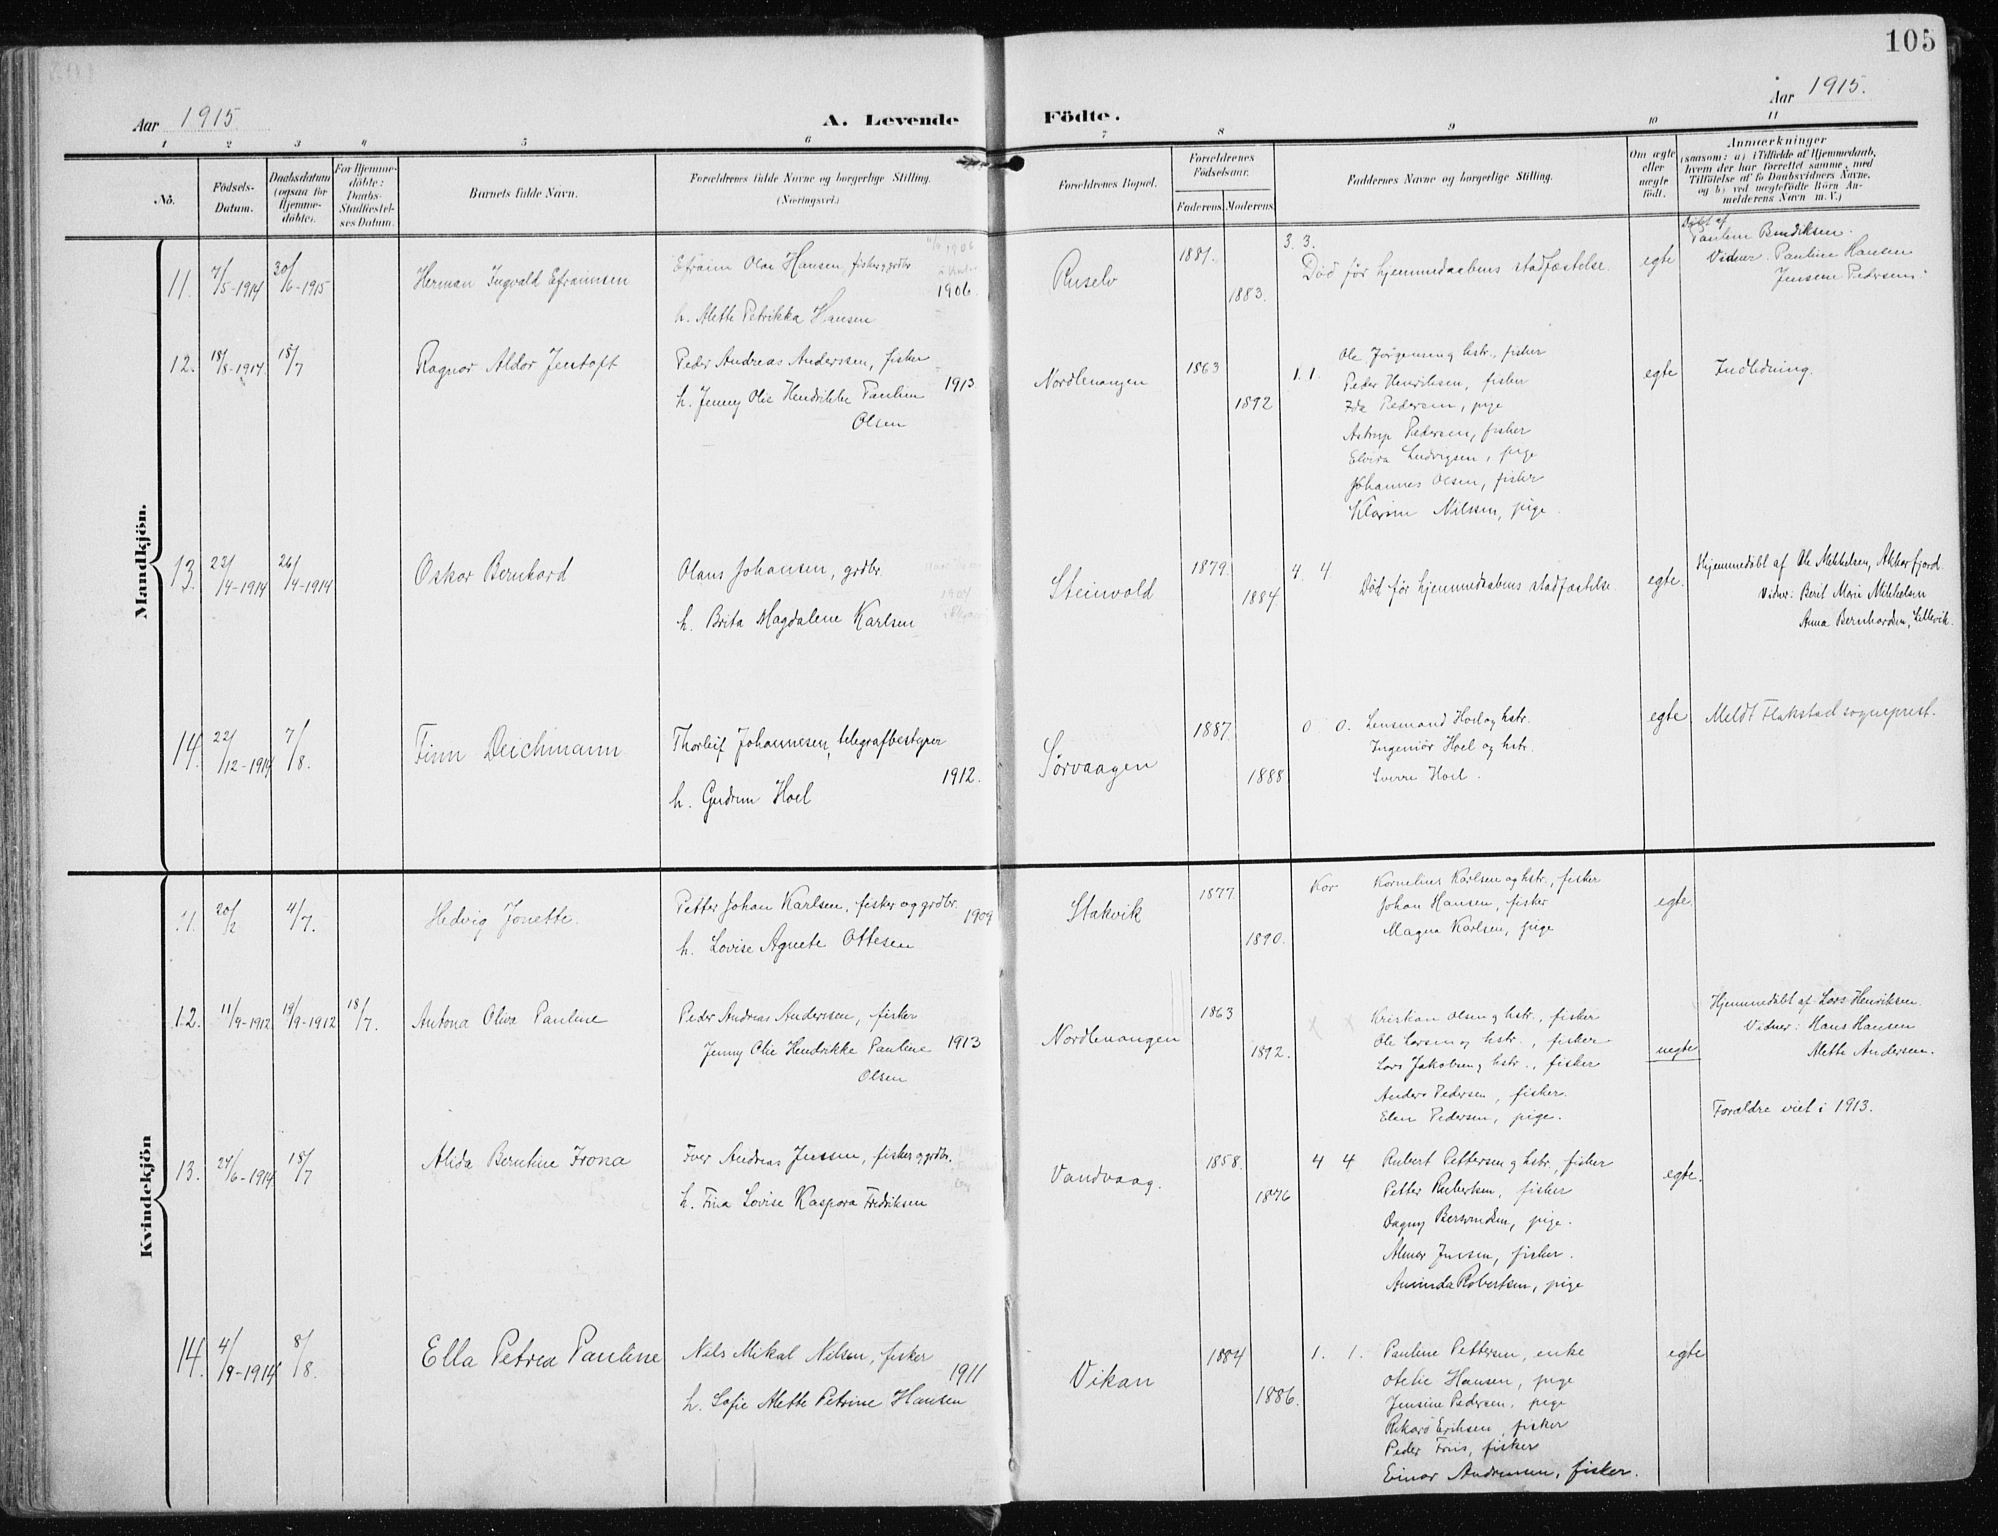 105
Aar 1915
A. Levende Födte.
Aar 1915.
1 2 3 4 5 6 7 8 9 10 11
No.
Födsels-
Datum.
Daabsdatum
(ogsaa for
Hjemme-
döbte).
For Hjemme-
döbte:
Daabs-
Stadfæstel-
ses Datum.
Barnets fulde Navn.
Forældrenes fulde Navne og borgerlige Stilling.
(Næringsvei.)
Forældrenes Bopæl.
Forældrenes
Födselsaar.
Faderens. Moderens.
Faddernes Navne og borgerlige Stilling.
Om ægte
eller
uægte
födt.
Anmærkninger
(saasom: a) i Tilfælde af Hjemmedaab,
hvem der har forrettet samme, med
Tilföielse af to Daabsvidners Navne,
og b) ved uægtefödte Börn An-
melderens Navn m. V.)
Mandkjön.
11. 7/5-1914 30/6-1915 Herman Ingvald
Efraim Olai Hansen, fisker og grdbr.
1906
h. Alette Petrikka Hansen
1881. 1883.
3. 3.
Død før hjemmedaabens stadfæstelse.
egte
Døbt af
Pauline Bendiksen.
Vidner: Pauline Hansen
Pedersen
12. 18/8-1914 18/7 Ragnar Aldor Jentoft
Peder Andreas Anderssen, fisker
1913
h. Jenny Olie Hendrikke Pauline
Olsen
Nordlenangen 1863 1892 1. 1.
Ole Jørgensen og hstr., fisker
Peder Henriksen, fisker
Ida Pedersen, pige
Astrup Pedersen, fisker
Elvira Ludvigsen, pige
Johannes Olsen, fisker
Nilssen, pige.
egte
Indledning.
13. 22/4-1914 26/4-1914 Oskar Bernhard
Olaus Johansen, grdbr.
h. Brita Magdalene Karlsen
Steinvold 1879. 1884 4. 4
Død før hjemmedaabens stadfæstelse.
egte.
Hjemmedøbt af Ole Mikkelsen, Akkarfjord.
Vidner: Berit Marie Mikkelsen
Anna Bernhardsen, Lillevik.
14. 22/12-1914 7/8. Finn Deichmann
Thorleif Johannesen, telegrafbestyrer
1912.
h. Gudrun Hoel
Sørvaagen 1887. 1888 0 0.
Lensmand Hoel og hstr.
Ingeniør Hoel og hstr.
Sverre Hoel.
egte
Meldt Flakstad sogneprest.
Kvindekjön
11. 20/2 4/7. Hedvig Jonette.
Petter Johan Karlsen, fisker og grdbr.
1909
h. Lovise Agnete Ottesen
Stakvik 1877. 1890. Kor
Kornelius Karlsen og hstr., fisker
Johan Hansen, fisker
Magna Karlsen, pige
egte.
12. 11/9-1912 19/9-1912 18/7. Antona Oliva Pauline
Peder Andreas Anderssen, fisker
Jenny Olie Hendrikke Pauline 1913
Olsen
Nordlenangen 1863 1892. x x
Kristian Olsen og hstr., fisker
Ole Larsen og hstr., fisker
Lars Jakobsen og hstr., fisker
Anders Pedersen, fisker.
Elen Pedersen, pige.
uegte
Hjemmedøbt af Lars Henriksen.
Vidner: Hans Hansen
Alette Andersen.
Forældre viet i 1913.
13. 24/6-1914 18/7 Alida Berntine Frona
Iver Andreas Jenssen, fisker og grdbr.
h. Fina Lovise Kaspara Fredriksen
Vandvaag. 1858. 1876 4 4
Rubert Pettersen og hstr., fisker
Petter Rubertsen, fisker
Dagny pige.
Almar Jenssen, fisker.
Robertsen, pige
egte.
14. 4/9-1914 8/8. Ella Petrea Pauline
Nils Mikal Nilsen, fisker
1911
h. Sofie Alette Petrine Hansen
Vikan 1884 1886. 1. 1.
Pauline Pettersen, enke
Otelie Hansen, pige
Jensine Pedersen, pige
Rikard Eriksen, fisker
Peder Friis, fisker
Einar Andreassen, fisker.
egte